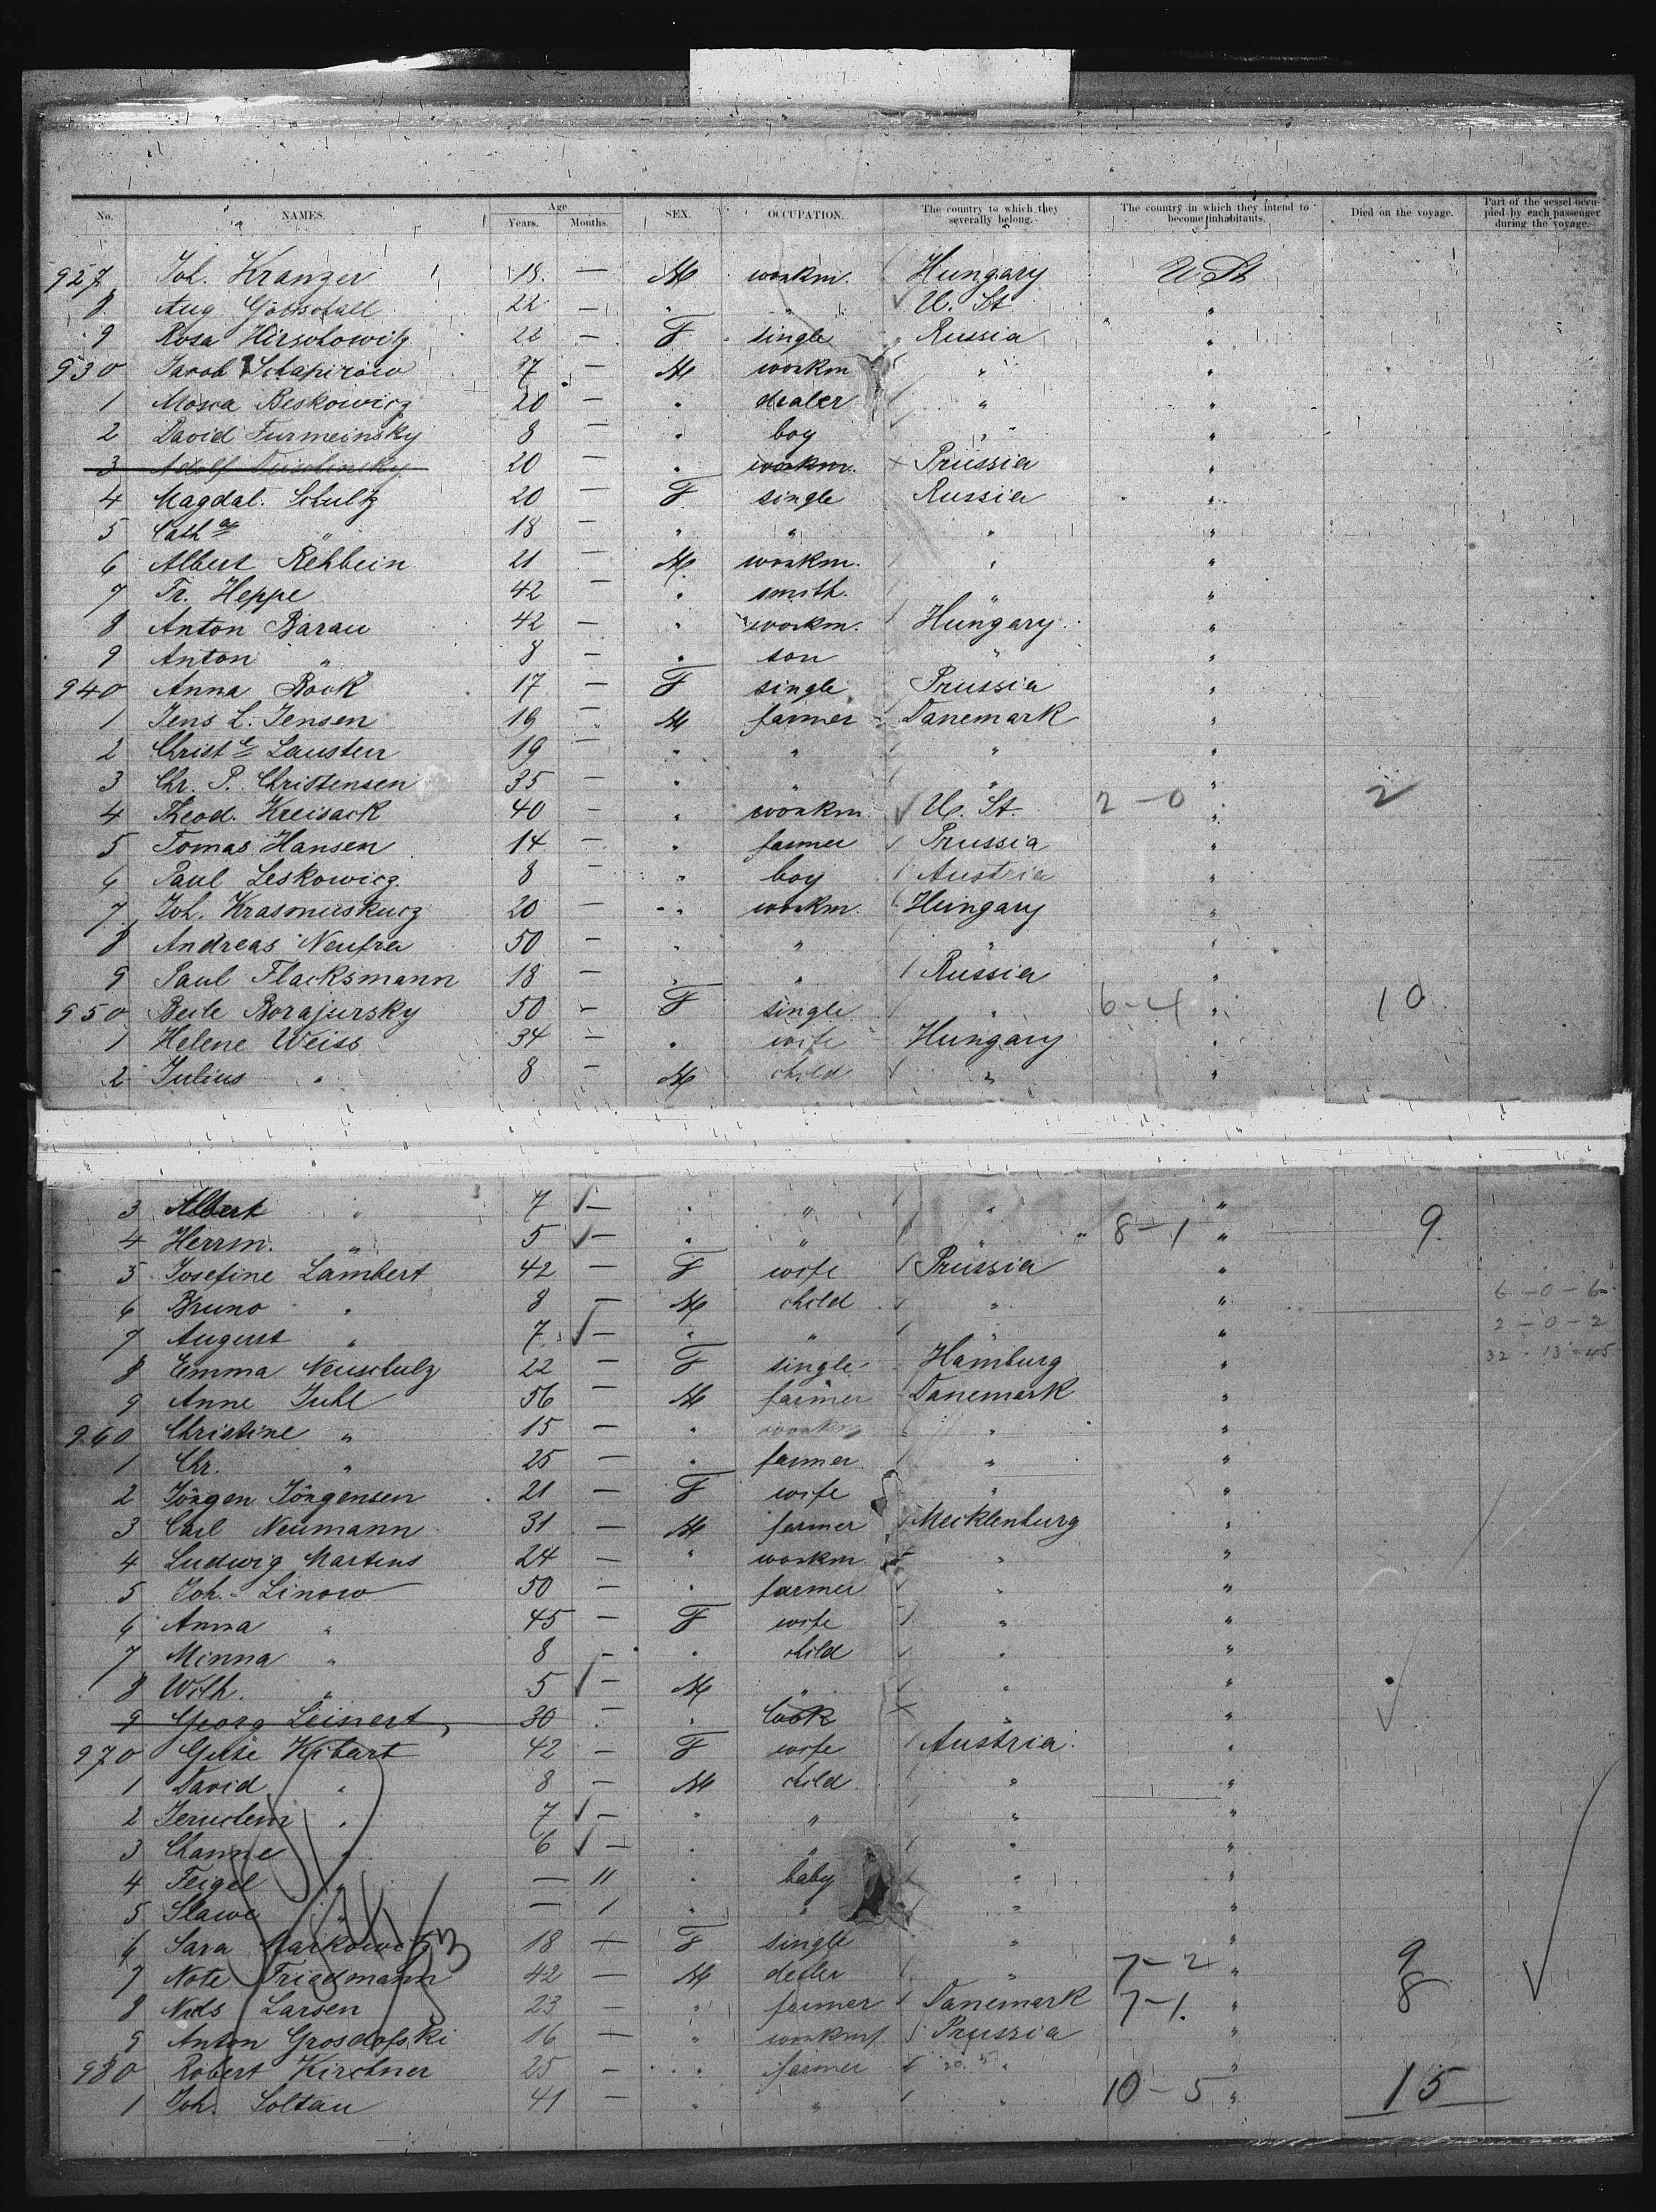 No. NAMES. Age Years. Months. SEX. OCCUPATION. The country to which they severally belong. The country in which they intend to become inhabitants. Died on the voyage. Part of the vessel occupied by each passenger during the voyage.
927 Joh. Kranzer 18 — M workm. Hungary U St
8 Aug 22 — " " U. St "
9 Rosa Hirschowitz 22 — F single Russia "
930 Jacob Schapirow 37 — M workm " "
1 Mosca Beskowicz 20 — " dealer " "
2 David Furmeinsky 8 — " boy " "
3 Adolf 20 — " workm. Prussia "
4 Magdal. Schultz 20 — F single Russia "
5 Cath " 18 — " " " "
6 Albert Rehbein 21 — M workm. " "
7 Fr. Heppe 42 — " smith. " "
8 Anton Barau 42 — " workm. Hungary "
9 Anton " 8 — " son " "
940 Anna Book 17 — F single Prussia "
1 Jens L. Jensen 19 — M farmer Danemark "
2 Christ Lausten 19 — " " " "
3 Chr. P. Christensen 35 — " " " "
4 Theod. Kreisack 40 — " workm U. St. 2-0 " 2
5 Tomas Hansen 14 — " farmer Prussia "
6 Paul Leskowicz 8 — " boy Austria "
7 Joh. Krasmuskucz 20 — " workm. Hungary "
8 Andreas Neufra 50 — " " " "
9 Saul Flacksmann 18 — " " Russia "
950 Beile Borajursky 50 — F single " 6-4 " 10
1 Helene Weiss 34 — " wife Hungary "
2 Julius " 8 — M child " "
3 Albert " 7 ✓— " " " "
4 Herrm. " 5 ✓— " " " 8-1 " 9
5 Josefine Lambert 42 — F wife Prussia "
6 Bruno " 8 — M child " " 6-0-6
7 August " 7 ✓— " " " " 2-0-2
8 Emma Neuschulz 22 — F single Hamburg " 32-13-45
9 Anne Juhl 56 — M farmer Danemark "
960 Christine " 15 — " workm " "
1 Chr. " 25 — " farmer " "
2 Jörgen Jörgensen 21 — F wife " "
3 Carl Neumann 31 — M farmer Mecklenburg "
4 Ludwig Martens 24 — " workm. " "
5 Joh. Linow 50 — " farmer " "
6 Anna " 45 — F wife " "
7 Minna " 8 — " child " "
8 Wilh. " 5 ✓— M " " "
9 Georg Leinert 30 — " Cook " "
970 Gutie Kibart 42 — F wife Austria "
1 David " 8 — M child " "
2 " 7 ✓— " " " "
3 Channe " 6 ✓— " " " "
4 Feigel " — 11 " baby " "
5 Slawe " — 1 " " " "
6 Sara Markowitz 18 — F single " "
7 Note Friedmann 42 — M dealer " 7-2 " 9
8 Niels Larsen 23 — " farmer Danemark 7-1 " 8
9 Anton Grosdofski 16 — " workm Prussia "
980 Robert Kirchner 25 — " farmer " "
1 Joh. Soltau 41 — " " " 10-5 " 15